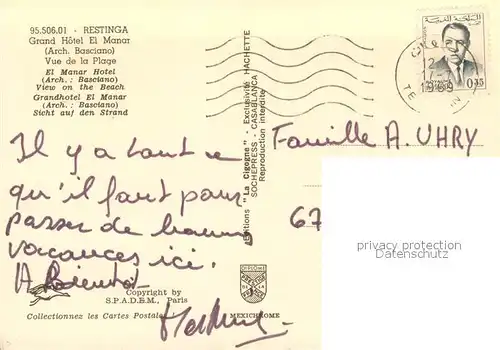 95.506.01 - RESTINGA
Grand Hôtel El Manar
(Arch. Basciano)
Vue de la Plage
El Manar Hotel
(Arch. : Basciano)
View on the Beach
Grandhotel El Manar
(Arch. : Basciano)
Sicht auf den Strand
Il y a tout ce
qu'il faut pour
passer de bonnes
vacances ici.
A Bientôt
Copyright by
S.P.A.D.E.M., Paris
Collectionnez les Cartes Postales
MEXICHROME
Editions "La Cigogne" - Exclusivité HACHETTE
SOCHEPRESS - CASABLANCA
Reproduction interdite
Famille A. UHRY
67
privacy protection
Datenschutz
1969
0,45